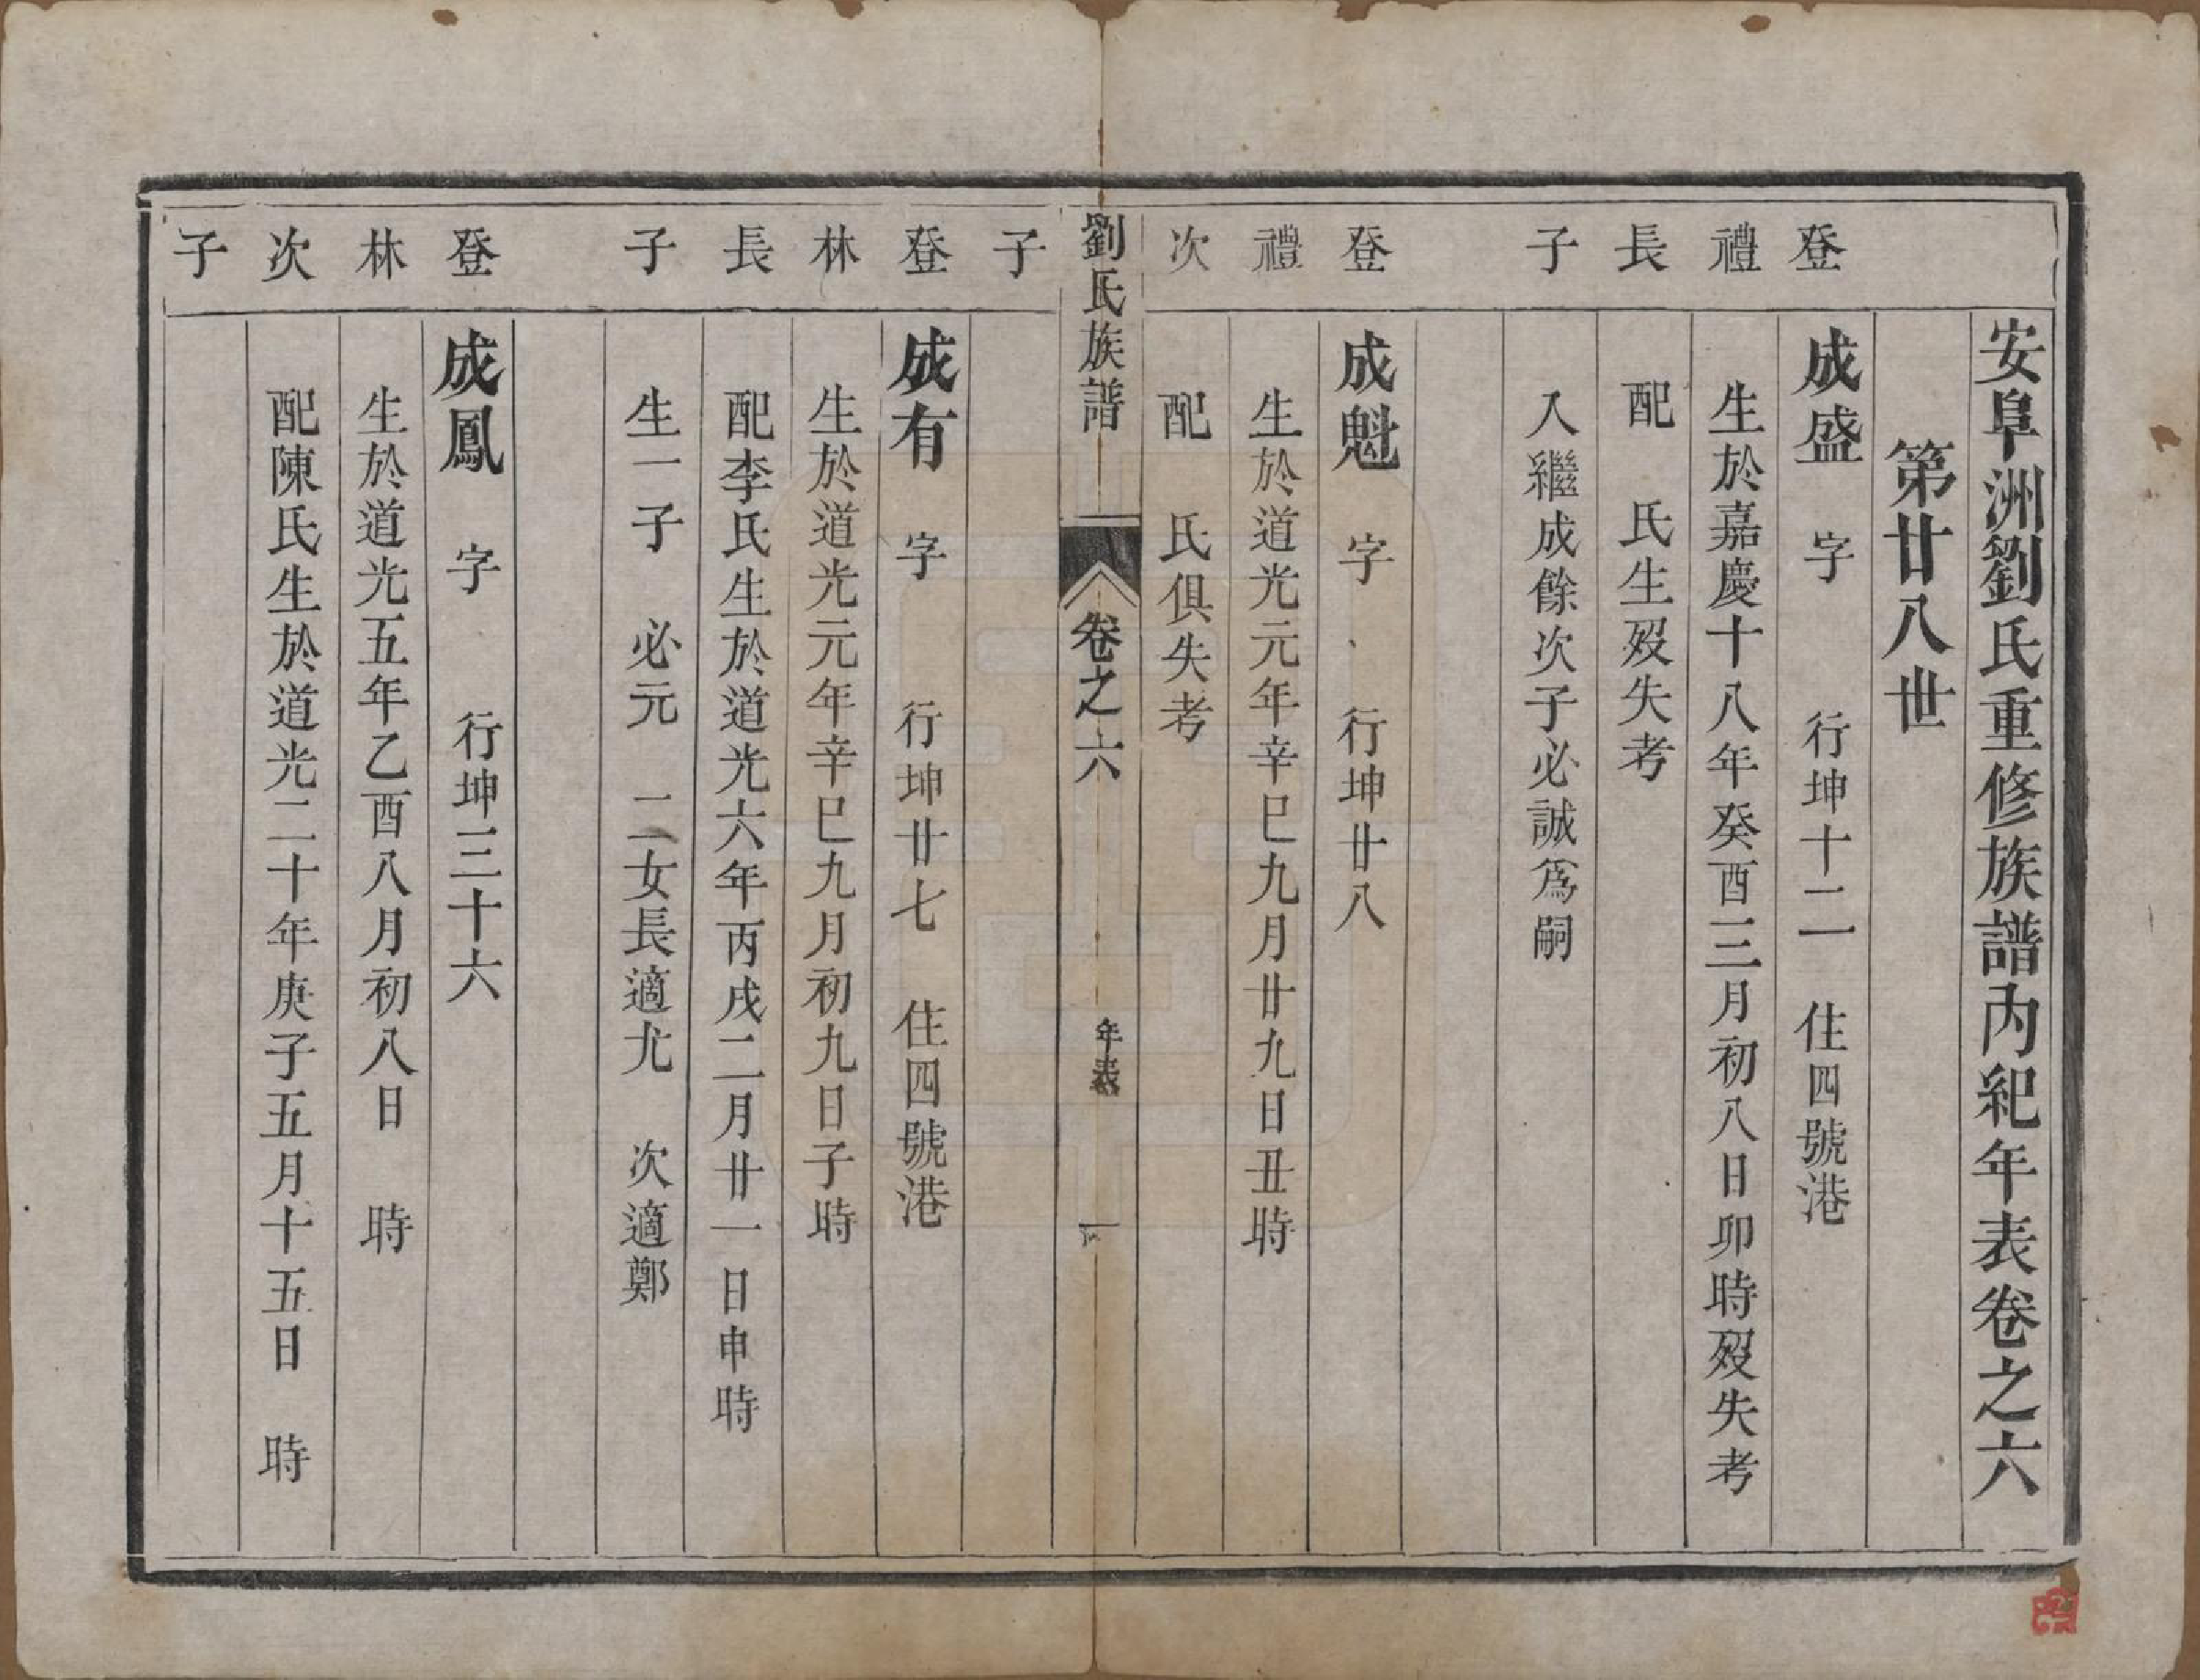 安阜洲劉氏重修族譜内紀年表卷之六
第廿八世
登禮長子
成盛 字 行坤十二 住四號港
生於嘉慶十八年癸酉三月初八日卯時歿失考
配 氏生歿失考
入繼成餘次子必誠爲嗣
登禮次子
成魁 字 行坤廿八
生於道光元年辛巳九月廿九日丑時
配 氏俱失考
劉氏族譜 卷之六 年表 一
登林長子
成有 字 行坤廿七 住四號港
生於道光元年辛巳九月初九日子時
配李氏生於道光六年丙戌二月廿一日申時
生一子 必元 二女長適尤 次適鄭
登林次子
成鳳 字 行坤三十六
生於道光五年乙酉八月初八日 時
配陳氏生於道光二十年庚子五月十五日 時